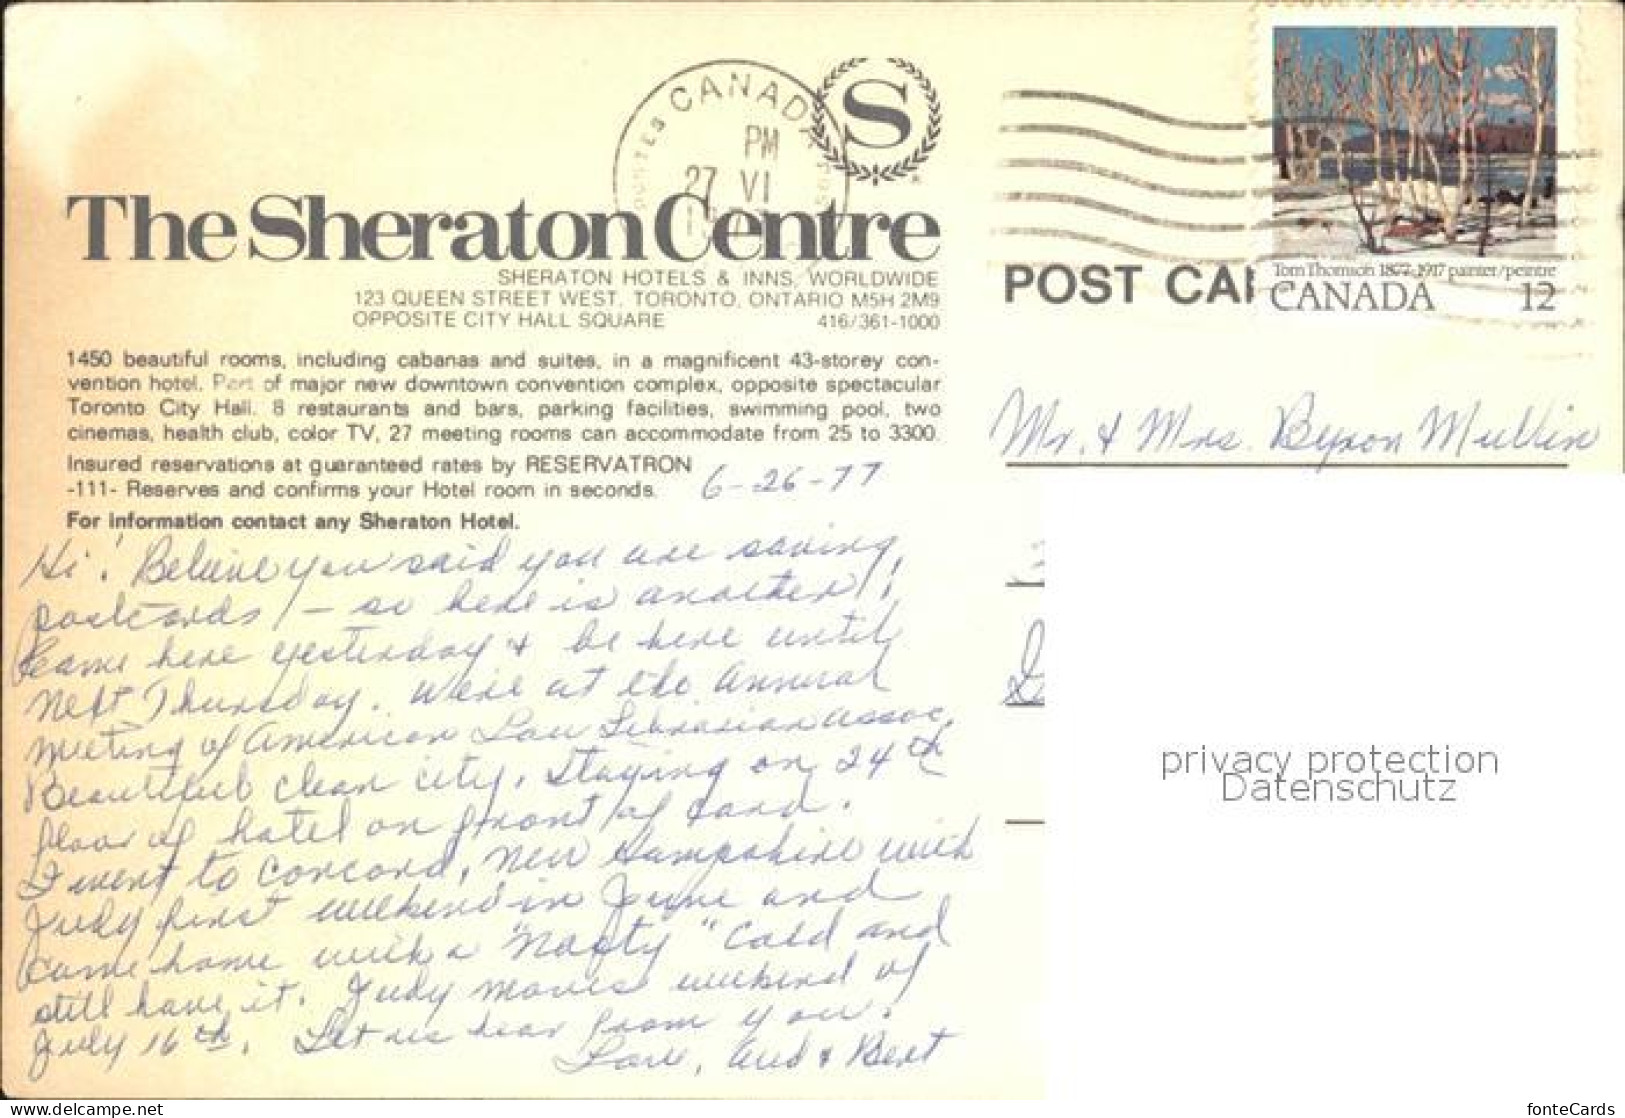 POSTES CANADA
PM
27 VI
S
The Sheraton Centre
SHERATON HOTELS & INNS, WORLDWIDE
123 QUEEN STREET WEST, TORONTO, ONTARIO M5H 2M9
OPPOSITE CITY HALL SQUARE 416/361-1000
1450 beautiful rooms, including cabanas and suites, in a magnificent 43-storey con-
vention hotel. Part of major new downtown convention complex, opposite spectacular
Toronto City Hall. 8 restaurants and bars, parking facilities, swimming pool, two
cinemas, health club, color TV, 27 meeting rooms can accommodate from 25 to 3300.
Insured reservations at guaranteed rates by RESERVATRON
-111- Reserves and confirms your Hotel room in seconds.
For information contact any Sheraton Hotel.
6-26-77
Hi! Believe you said you are saving
postcards - so here is another!
Came here yesterday & be here until
next Thursday. We're at the Annual
Meeting of American Law Librarian Assoc.
Beautiful clean city. Staying on 24th
floor of hotel on front of card.
I went to Concord, New Hampshire with
Judy first weekend in June and
came home with a "Nasty" cold and
still have it. Judy moves weekend of
July 16th. Let us hear from you.
Love, & Bert
POST CAR
Tom Thomson 1877-1917 painter/peintre
CANADA 12
Mr. & Mrs. Byron Mullin
privacy protection
Datenschutz
delcampe.net
fonteCards